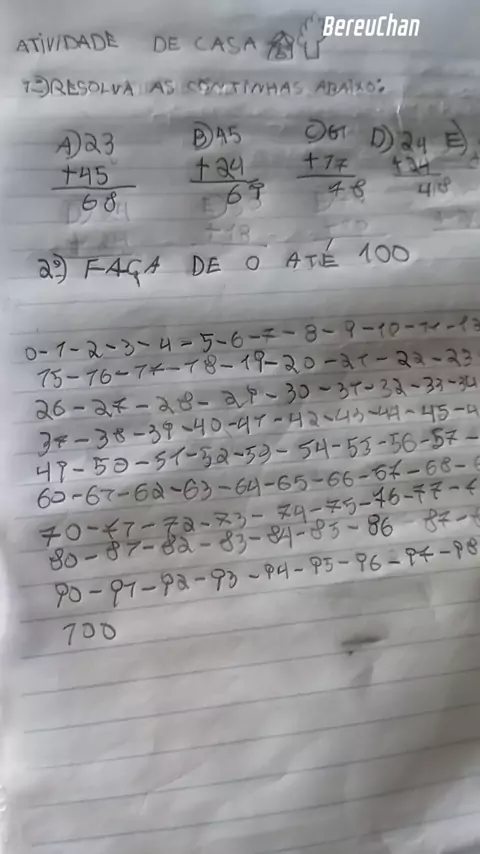 BereuChan
ATIVIDADE DE CASA
1º) RESOLVA AS CONTINHAS ABAIXO:
A) 23 B) 45 C) 61 D) 24 E)
+45 +24 +17 +24
68 69 78 48
2º) FAÇA DE 0 ATÉ 100
0-1-2-3-4-5-6-7-8-9-10-11-12
15-16-17-18-19-20-21-22-23
26-27-28-29-30-31-32-33-34
37-38-39-40-41-42-43-44-45-4
49-50-51-52-53-54-55-56-57-
60-61-62-63-64-65-66-67-68-6
70-71-72-73-74-75-76-77-7
80-81-82-83-84-85-86 87-8
90-91-92-93-94-95-96-97-98
100